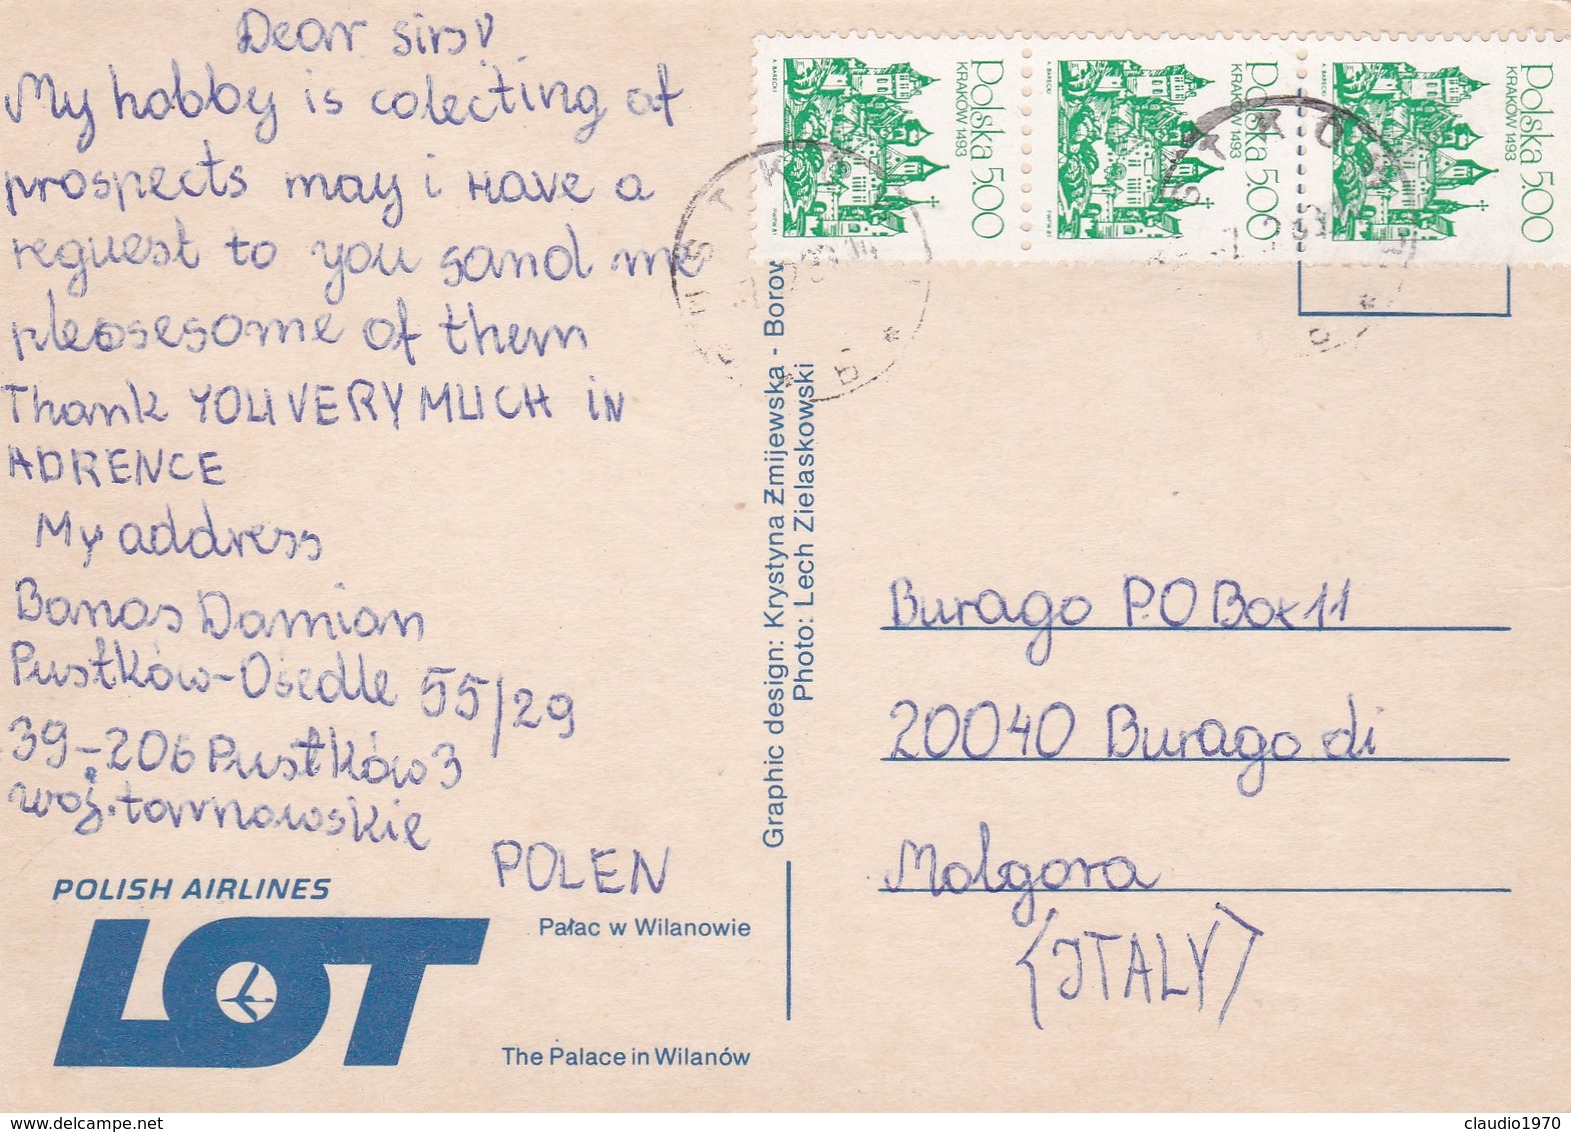 Dear sirs!
My hobby is colecting of
prospects may i Have a
reguest to you sand me
pleosesome of them
Thank YOU VERY MUCH iN
ADRENCE
My address
Banas Damian
Pustków-Osedle 55/29
39-206 Pustków 3
woj. tarnowskie
POLEN
POLISH AIRLINES
LOT
Pałac w Wilanowie
The Palace in Wilanów
Graphic design: Krystyna Żmijewska - Borov
Photo: Lech Zielaskowski
Polska 5.00
KRAKÓW 1493
A. BARECKI
PWPW 81
Polska 5.00
KRAKÓW 1493
A. BARECKI
PWPW 81
Polska 5.00
KRAKÓW 1493
A. BARECKI
PWPW 81
Burago P.O Box 11
20040 Burago di
Molgora
(ITALY)
claudio1970